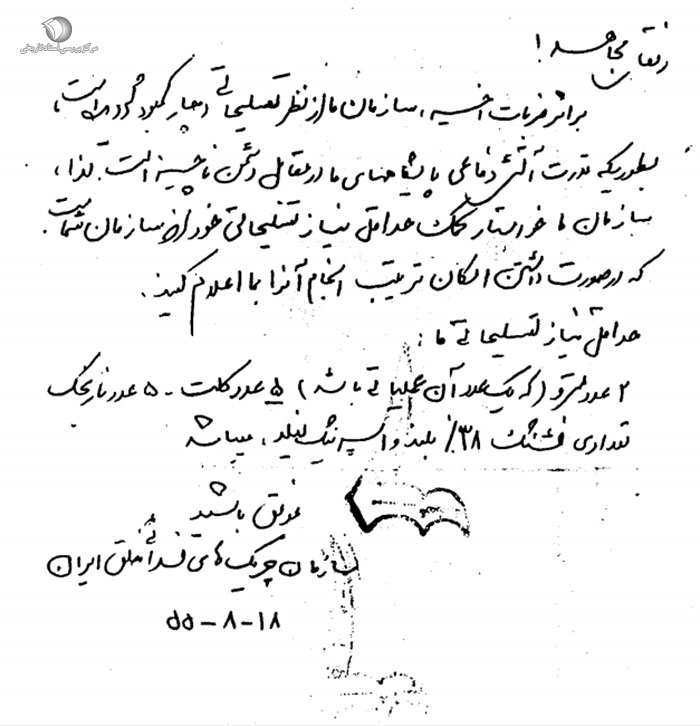 مرکز بررسی اسناد تاریخی
رفقای مجاهد!
براثر ضربات اخیر، سازمان ما از نظر تسلیحاتی دچار کمبود گردیده است،
بطوریکه قدرت آتش دفاعی پایگاههای ما در مقابل دشمن ناچیز است. لذا،
سازمان ما خواستار کمک حداقل نیاز تسلیحاتی خود از سازمان شماست.
که در صورت داشتن امکان ترتیب انجام آنرا بما اعلام کنید.
حداقل نیاز تسلیحاتی ما:
۲ عدد (که یک عدد آن عملیاتی باشد) ۵ عدد کلت - ۵ عدد نارنجک
تعدادی فشنگ ۳۸٪ بلند و ، میباشد
موفق باشید
سازمان چریکهای فدائی خلق ایران
۵۵-۸-۱۸